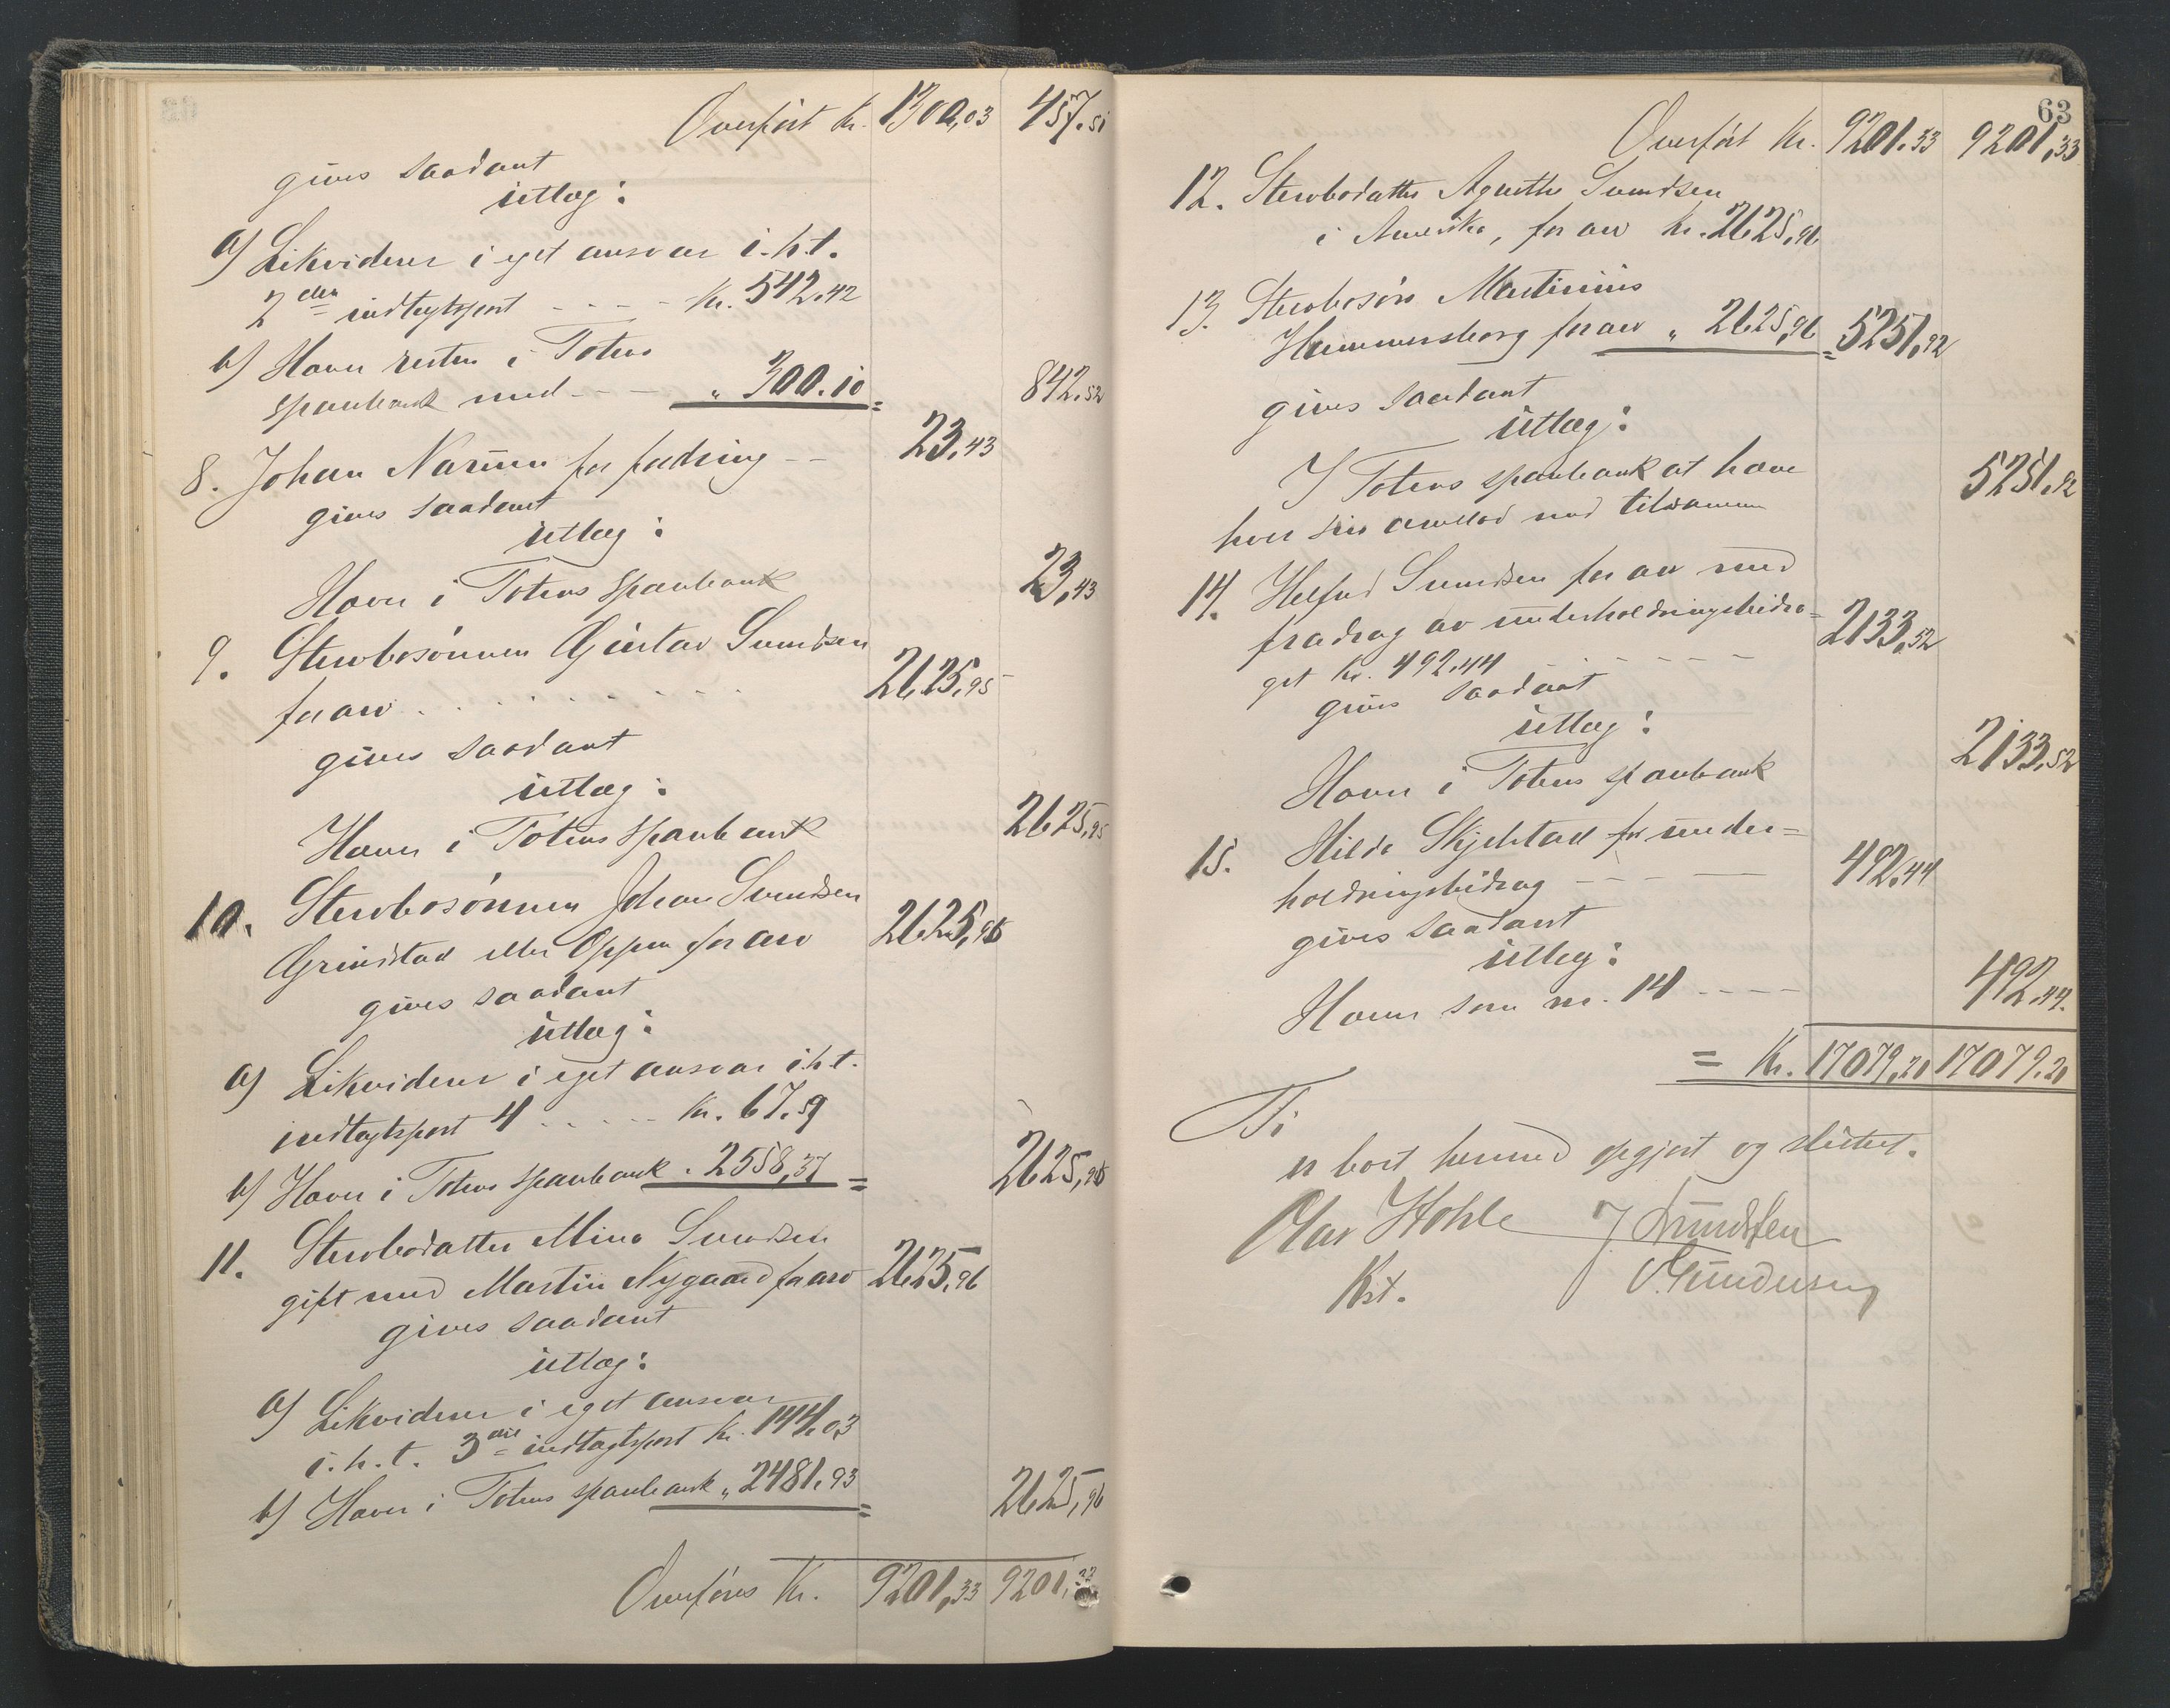 Overført Kr. 1300,03 457.51
gives saadant
utlæg:
a) Likviderer i eget ansvar i.h.t.
2den indtægtspost - - - - Kr. 542.42
b) Haver resten i Totens
sparebank med - - - " 300.10 = 842.52
8. Johan Narum for fodring - - 23,43
gives saadant
utlæg:
Haver i Totens Sparebank 23,43
9. Stervbosønnen Gustav Svendsen
for arv . . . . . . . . 2625,95
gives saadant
utlæg:
Haver i Totens Sparebank 2625,95
10. Stervbosønnen Johan Svendsen
Grindstad eller Oppen for arv 2625,96
gives saadant
utlæg:
a) Likviderer i eget ansvar i.h.t.
indtægtspost 4 . . . . . Kr. 67.59
b) Haver i Totens Sparebank " 2558,37 = 2625,96
11. Stervbodatter Mina Svendsen
gift med Martin Nygaard for arv 2625,96
gives saadant
utlæg:
a) Likviderer i eget ansvar
i.h.t. 3die indtægtspost Kr. 144,03
b) Haver i Totens sparebank " 2481.93 = 2625,96
Overføres Kr. 9201,33 9201,33
63
Overført Kr. 9201.33 9201,33
12. Stervbodatter Agnethe Svendsen
i Amerika, for arv Kr. 2625,96
13. Stervbosøn Martinius
Hammersborg for arv " 2625,96 = 5251,92
gives saadant
utlæg:
I Totens sparebank at have
hver sin arvelod med tilsammen 5251,92
14. Helfred Svendsen for arv med
fradrag av underholdningsbidra=
get Kr. 492.44 - - - - - - 2133,52
gives saadant
utlæg:
Haver i Totens sparebank 2133,52
15. Hilda Skjelstad for under=
holdningsbidrag - - - 492.44
gives saadant
utlæg:
Haver som nr. 14 - - - - 492.44.
= Kr. 17079,21 17079.21
Ti
er bort hermed opgjort og sluttet.
Olav Hohle J Svendsen
Kst. Gundersen